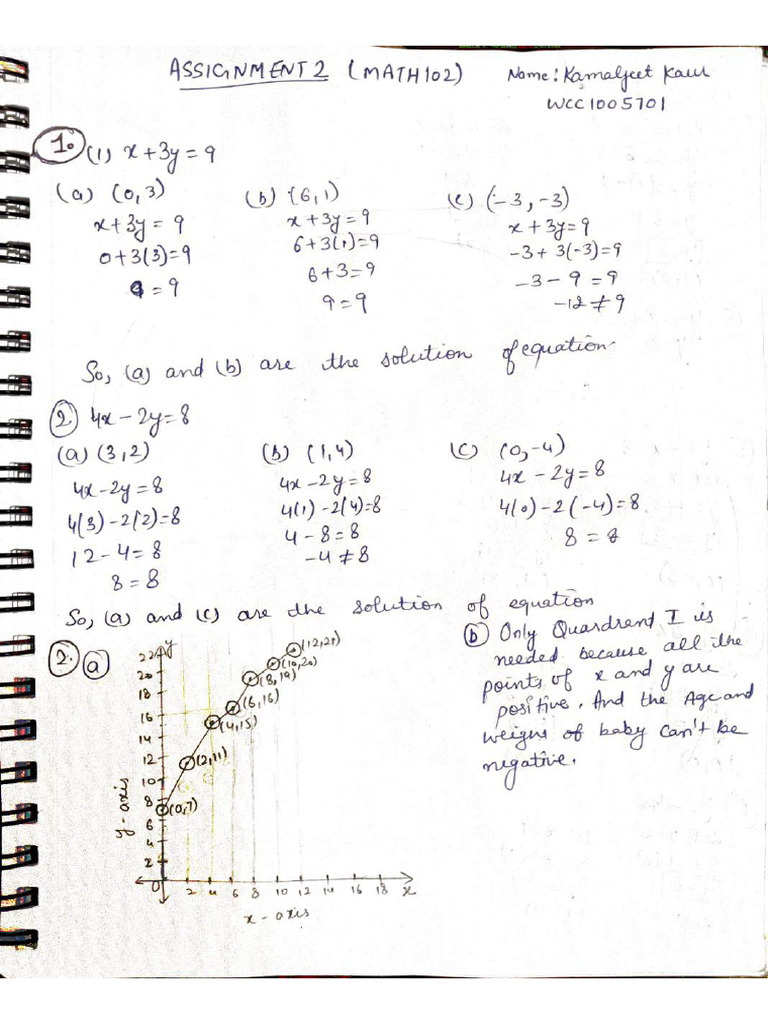 ASSIGNMENT 2 (MATH102) Name: Kamaljeet Kaur
WCC1005701
1. (1) x + 3y = 9
(a) (0,3) (b) (6,1) (c) (-3,-3)
x + 3y = 9 x + 3y = 9 x + 3y = 9
0 + 3(3) = 9 6 + 3(1) = 9 -3 + 3(-3) = 9
9 = 9 6 + 3 = 9 -3 - 9 = 9
9 = 9 -12 ≠ 9
So, (a) and (b) are the solution of equation.
2 4x - 2y = 8
(a) (3,2) (b) (1,4) (c) (0,-4)
4x - 2y = 8 4x - 2y = 8 4x - 2y = 8
4(3) - 2(2) = 8 4(1) - 2(4) = 8 4(0) - 2(-4) = 8
12 - 4 = 8 4 - 8 = 8 8 = 8
8 = 8 -4 ≠ 8
So, (a) and (c) are the solution of equation
2. (a)
y
22
20
18
16
14
12
10
8
6
4
2
0 2 4 6 8 10 12 14 16 18 x
(0,7)
(2,11)
(4,15)
(6,16)
(8,19)
(10,20)
(12,21)
y-axis
x-axis
(b) Only Quardrent I is
needed because all the
points of x and y are
positive. And the Age and
weight of baby can't be
negative.